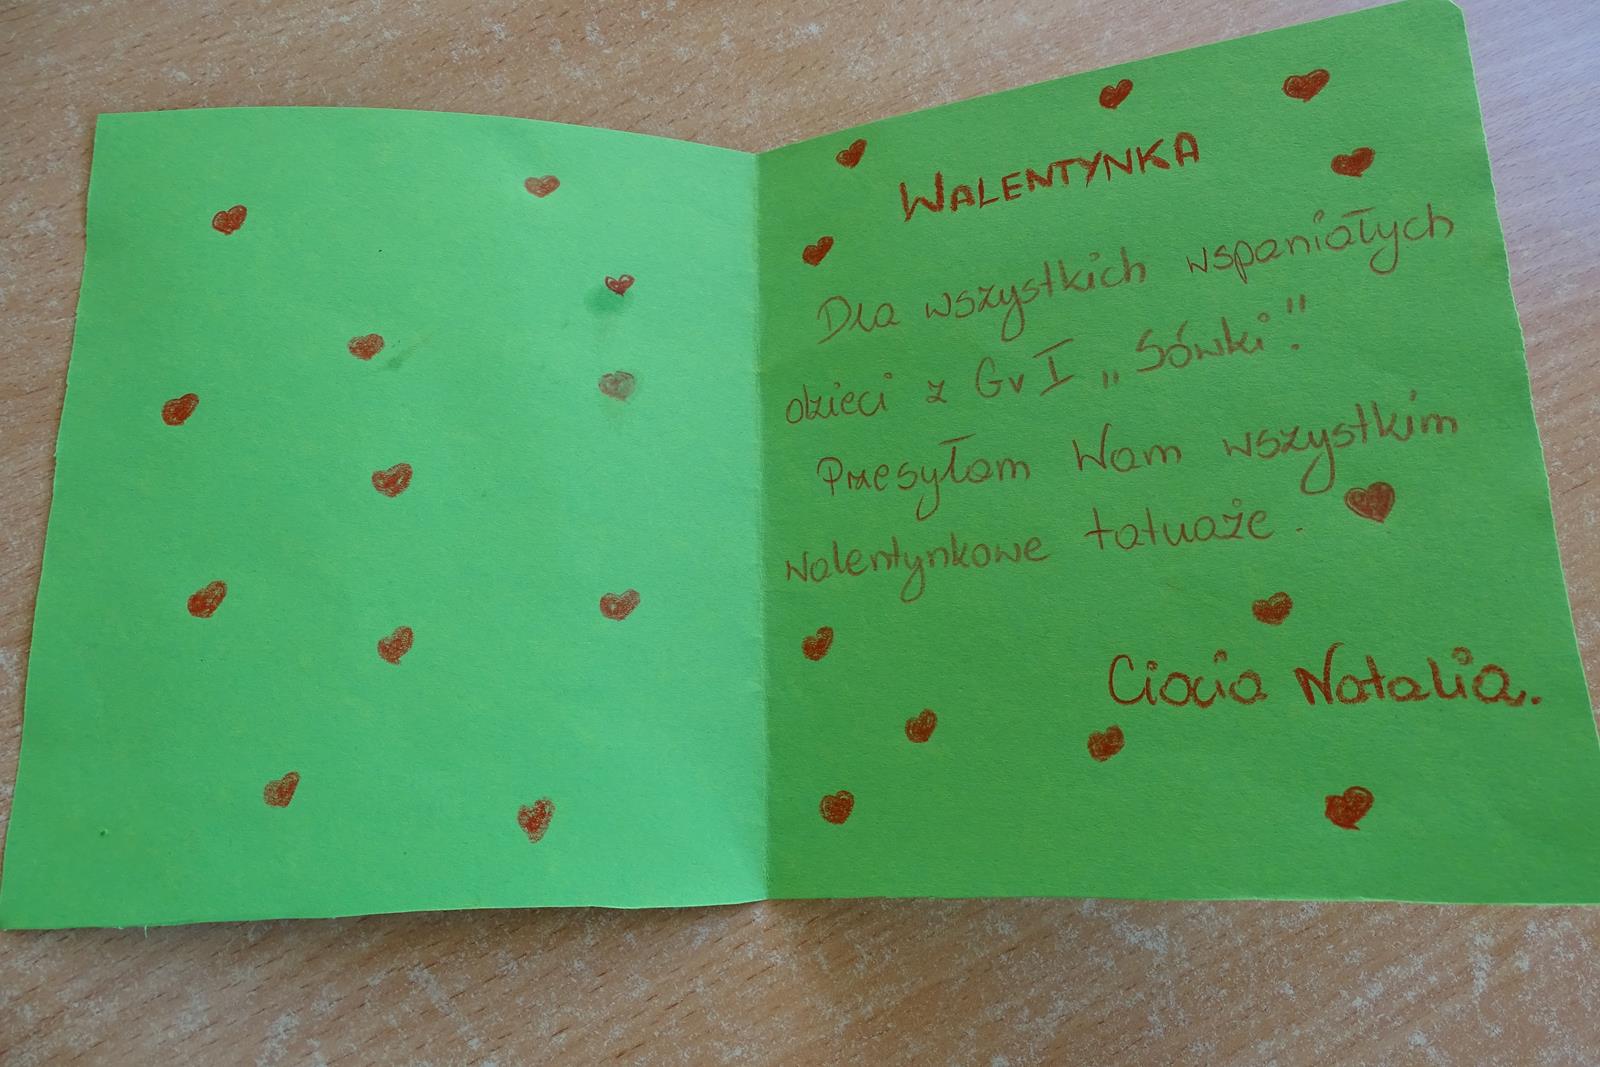 WALENTYNKA
Dla wszystkich wspaniałych
dzieci z Gr I „Sówki".
Przesyłam Wam wszystkim
walentynkowe tatuaże.
Ciocia Natalia.